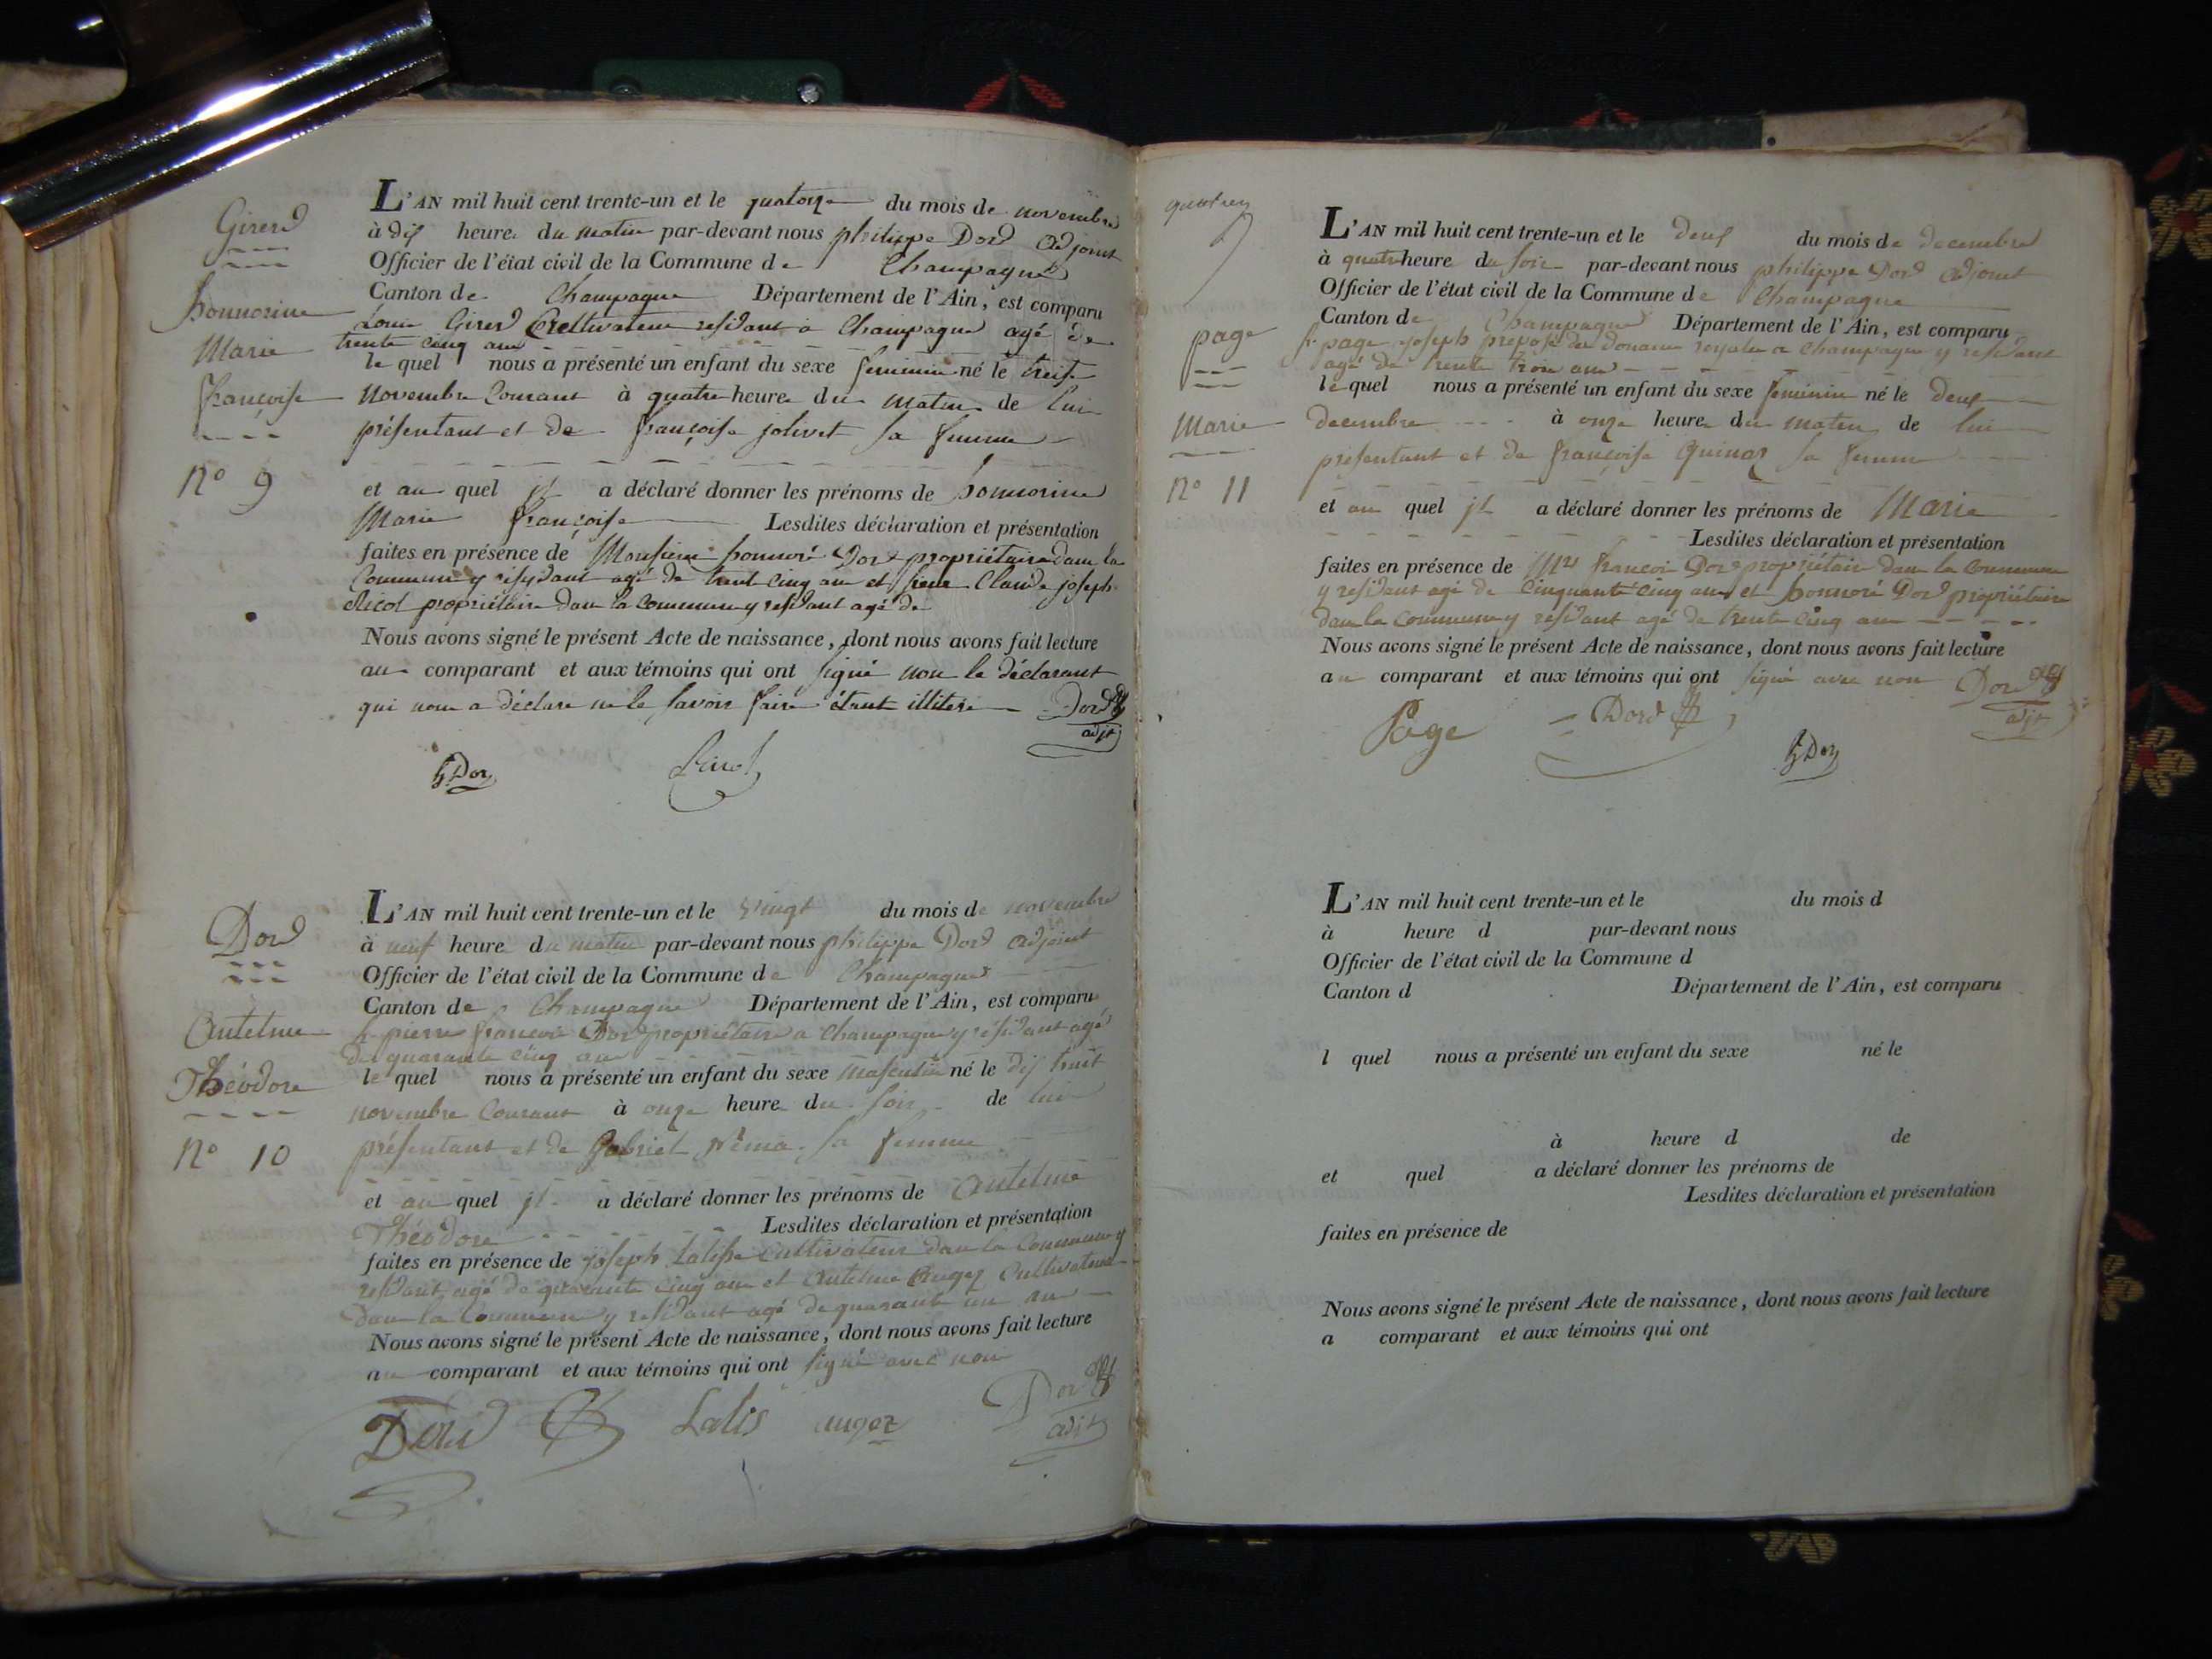 Girerd
honnorine
Marie
françoise
N° 9
L'AN mil huit cent trente-un et le quatorze du mois de novembre
à dix heure du matin par-devant nous philippe Dord adjoint
Officier de l'état civil de la Commune de Champagne
Canton de Champagne Département de l'Ain, est comparu
Louis Girerd Cultivateur residant à Champagne agé de
trente cinq ans
le quel nous a présenté un enfant du sexe feminin né le treise
novembre Courant à quatre heure du matin de lui
présentant et de françoise jolivet sa femme
et au quel jl a déclaré donner les prénoms de honnorine
Marie françoise Lesdites déclaration et présentation
faites en présence de Monsieur honnoré Dord propriétaire dans la
Commune y résidant agé de trent cinq ans et sieur Claude joseph
propriétaire dans la commune y residant agé de
Nous avons signé le présent Acte de naissance, dont nous avons fait lecture
au comparant et aux témoins qui ont signé non le déclarant
qui nous a déclare ne le savoir faire étant illiteré Dord
adjt
h Dord
Dord
Antelme
Théodore
N° 10
L'AN mil huit cent trente-un et le vingt du mois de novembre
à neuf heure du matin par-devant nous philippe Dord adjoint
Officier de l'état civil de la Commune de Champagne
Canton de Champagne Département de l'Ain, est comparu
Sr pierre françois Dord propriétaire a Champagne y résidant agé
de quarante cinq ans
le quel nous a présenté un enfant du sexe masculin né le dix huit
novembre Courant à onze heure du soir de lui
présentant et de Gabriel sa femme
et au quel jl a déclaré donner les prénoms de antelme
Théodore Lesdites déclaration et présentation
faites en présence de joseph Lalisse cultivateur dans la Commune y
residant agé de quarante cinq ans et Antelme Augez Cultivateur
dans la Commune y residant agé de quarante un ans
Nous avons signé le présent Acte de naissance, dont nous avons fait lecture
au comparant et aux témoins qui ont signé avec nous
Dord Lalis augez Dord
adjt
page
Marie
N° 11
L'AN mil huit cent trente-un et le deux du mois de decembre
à quatre heure du soir par-devant nous philippe Dord adjoint
Officier de l'état civil de la Commune de Champagne
Canton de Champagne Département de l'Ain, est comparu
Sr page joseph préposé des douanes royales a Champagne y residant
agé de trente trois ans
le quel nous a présenté un enfant du sexe feminin né le deux
decembre à onze heure du matin de lui
présentant et de françoise Guinaz sa femme
et au quel jl a déclaré donner les prénoms de Marie
Lesdites déclaration et présentation
faites en présence de Mrs francois Dord propriétaire dans la Commune
y residant agé de cinquante cinq ans et honnoré Dord propriétaire
dans la commune y résidant agé de trente cinq ans
Nous avons signé le présent Acte de naissance, dont nous avons fait lecture
au comparant et aux témoins qui ont signé avec nous Dord
adjt
Page Dord h Dord
L'AN mil huit cent trente-un et le du mois d
à heure d par-devant nous
Officier de l'état civil de la Commune d
Canton d Département de l'Ain, est comparu
l quel nous a présenté un enfant du sexe né le
à heure d de
et quel a déclaré donner les prénoms de
Lesdites déclaration et présentation
faites en présence de
Nous avons signé le présent Acte de naissance, dont nous avons fait lecture
a comparant et aux témoins qui ont